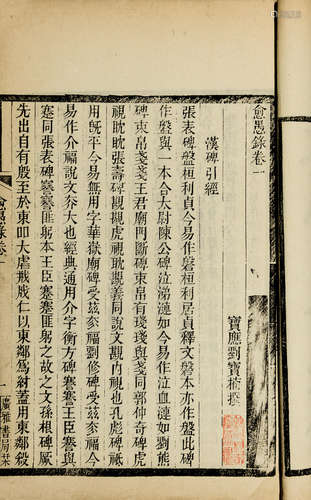 愈愚錄卷一
寶應劉寶楠撰
漢碑引經
張表碑盤桓利貞今易作磐桓利居貞釋文磐本亦作盤此碑
作盤與一本合太尉陳公碑泣涕漣如今易作泣血漣如劉熊
碑束帛戔戔王君廟門斷碑束帛有琖琖與戔同郭仲奇碑虎
視眈眈張壽碑觀觀虎視眈觀義同說文觀內視也孔彪碑祗
用旣平今易無用字華嶽廟碑受茲夰福劉修碑受茲夰福今
易作介福說文夰大也經典通用介字衡方碑謇謇王臣謇與
蹇同張表碑謇謇匪躬本王臣蹇蹇匪躬之故之文孫根碑厥
先出自有殷至於東𠮟大虐戕成仁以東鄰爲紂蓋用東鄰殺
愈愚錄卷一
一
廣雅書局栞